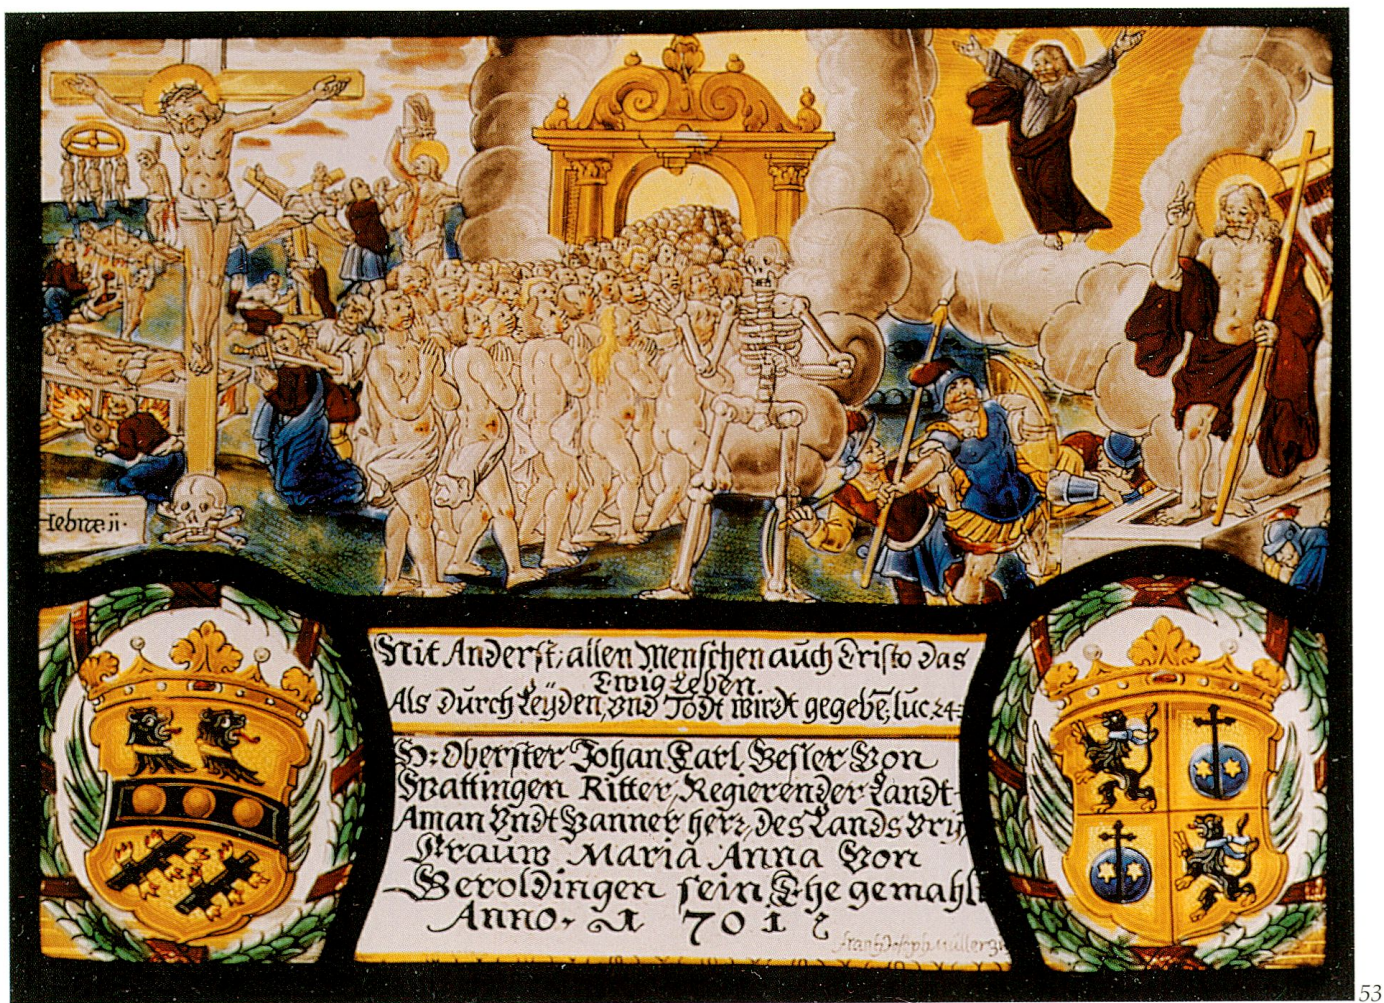 Hebræ ii.
Nit Anderst, allen Menschen auch Cristo das
Ewig Leben.
Als durch Leÿden, und Todt wirdt gegebē, luc. 24:
H: Oberster Johan Carl Besler Von
Wattingen Ritter, Regierender Landt-
Aman Undt Panner herr, des Lands Vrÿ,
Frauw Maria Anna Von
Beroldingen sein Ehe gemahl
Anno. 1701
53